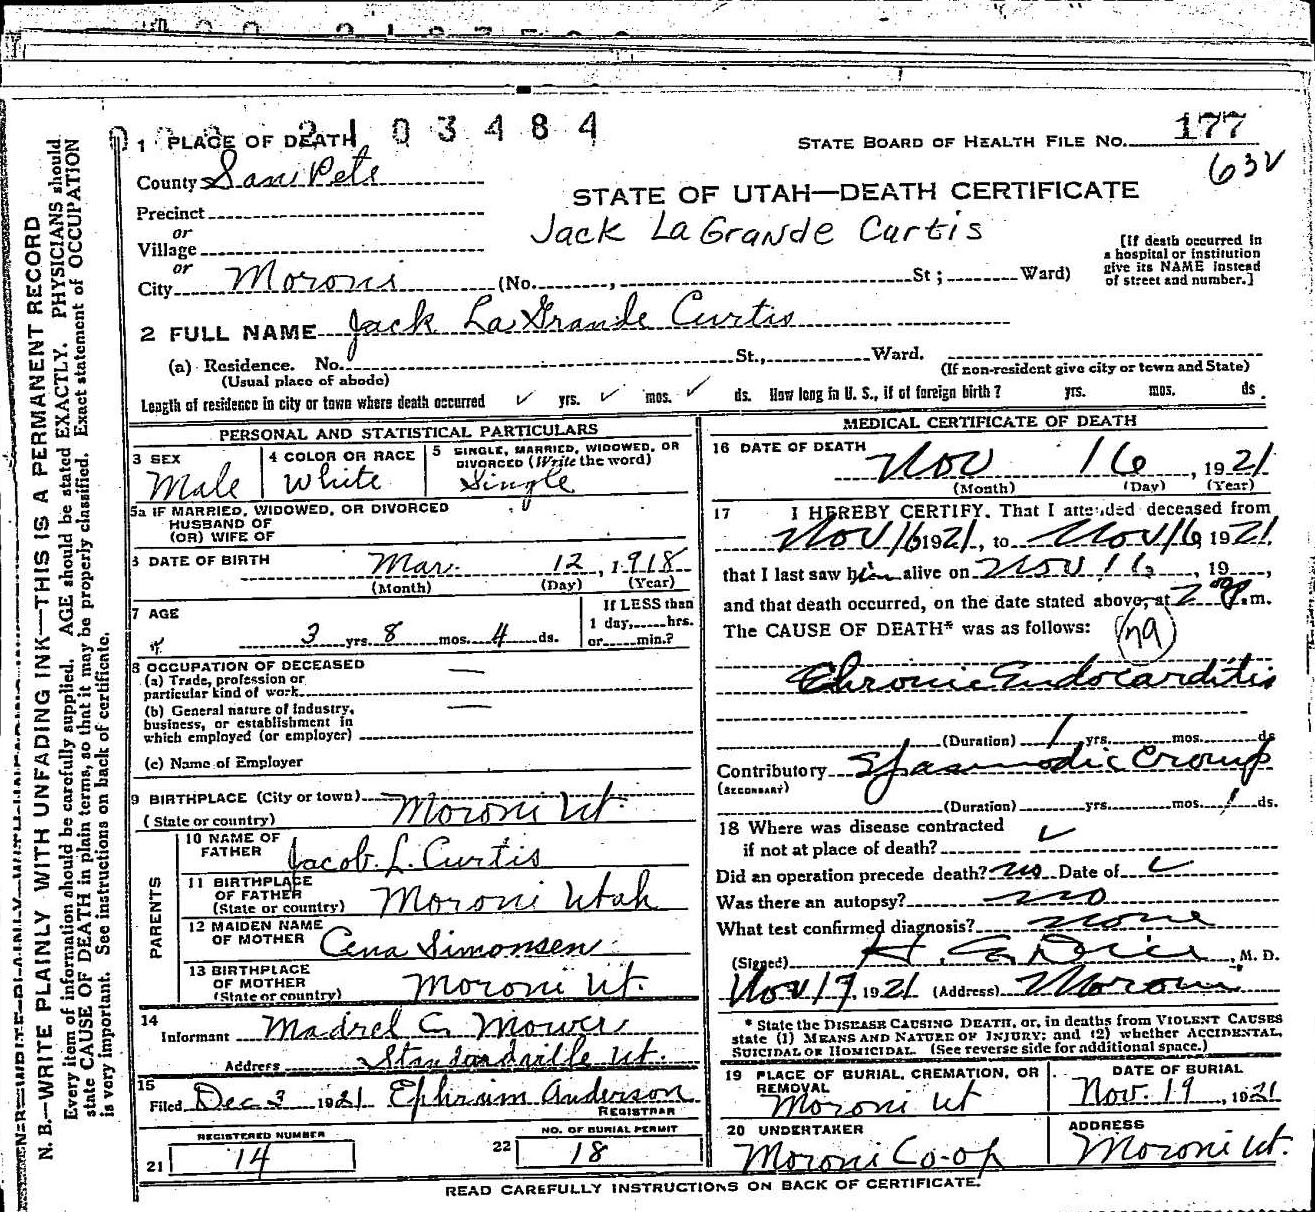 2103484
1 PLACE OF DEATH
STATE BOARD OF HEALTH FILE No. 177
County SanPete
63V
STATE OF UTAH—DEATH CERTIFICATE
Precinct
or
Jack LaGrande Curtis
Village
or
City Moroni (No. , St; Ward)
[If death occurred in a hospital or institution give its NAME instead of street and number.]
2 FULL NAME Jack LaGrande Curtis
(a) Residence. No. St., Ward.
(Usual place of abode)
(If non-resident give city or town and State)
Length of residence in city or town where death occurred ✓ yrs. ✓ mos. ✓ ds. How long in U. S., if of foreign birth? yrs. mos. ds.
PERSONAL AND STATISTICAL PARTICULARS
3 SEX
Male
4 COLOR OR RACE
White
5 SINGLE, MARRIED, WIDOWED, OR DIVORCED (Write the word)
Single
5a IF MARRIED, WIDOWED, OR DIVORCED
HUSBAND OF
(OR) WIFE OF
6 DATE OF BIRTH Mar. 12, 1918
(Month) (Day) (Year)
7 AGE
3 yrs. 8 mos. 4 ds.
If LESS than
1 day, hrs.
or min.?
8 OCCUPATION OF DECEASED
(a) Trade, profession or
particular kind of work
(b) General nature of Industry,
business, or establishment in
which employed (or employer)
(c) Name of Employer
9 BIRTHPLACE (City or town)
(State or country) Moroni Ut.
PARENTS
10 NAME OF FATHER Jacob L. Curtis
11 BIRTHPLACE OF FATHER (State or country) Moroni Utah
12 MAIDEN NAME OF MOTHER Cena Simonsen
13 BIRTHPLACE OF MOTHER (State or country) Moroni Ut.
14
Informant Madrel C. Mower
Address Standardville Ut.
15
Filed Dec 3 1921 Ephraim Anderson
REGISTRAR
21 REGISTERED NUMBER 14
22 NO. OF BURIAL PERMIT 18
MEDICAL CERTIFICATE OF DEATH
16 DATE OF DEATH
Nov 16, 1921
(Month) (Day) (Year)
17 I HEREBY CERTIFY, That I attended deceased from
Nov 16 1921, to Nov 16, 1921
that I last saw him alive on Nov 16, 19 ,
and that death occurred, on the date stated above, at 2 P.m.
The CAUSE OF DEATH* was as follows:
Chronic Endocarditis
(Duration) 1 yrs. mos. ds
Contributory Spasmodic Croup
(SECONDARY)
(Duration) yrs. mos. 1 ds.
18 Where was disease contracted
if not at place of death? ✓
Did an operation precede death? no Date of ✓
Was there an autopsy? no
What test confirmed diagnosis? none
(Signed) , M. D.
Nov 19, 1921 (Address) Moroni
* State the DISEASE CAUSING DEATH, or, in deaths from VIOLENT CAUSES
state (1) MEANS AND NATURE OF INJURY; and (2) whether ACCIDENTAL,
SUICIDAL OR HOMICIDAL. (See reverse side for additional space.)
19 PLACE OF BURIAL, CREMATION, OR REMOVAL
Moroni Ut
DATE OF BURIAL
Nov. 19, 1921
20 UNDERTAKER
Moroni Co-op
ADDRESS
Moroni Ut.
READ CAREFULLY INSTRUCTIONS ON BACK OF CERTIFICATE.
N. B.—WRITE PLAINLY WITH UNFADING INK—THIS IS A PERMANENT RECORD
Every item of information should be carefully supplied. AGE should be stated EXACTLY. PHYSICIANS should
state CAUSE OF DEATH in plain terms, so that it may be properly classified. Exact statement of OCCUPATION
is very important. See instructions on back of certificate.